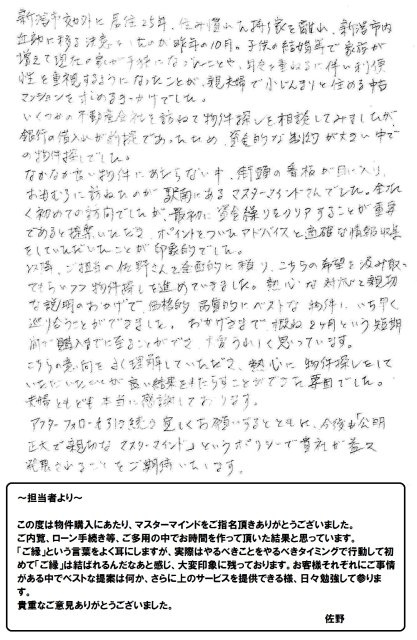 新潟市郊外に居住25年、住み慣れた持ち家を離れ、新潟市内
近郊に移る決意をしたのが昨年の10月。子供の結婚等で家族が
増えて現在の家が手狭になったことや、年を重ねるに伴い利便
性を重視するようになったことが、親夫婦で小じんまりと住める中古
マンションを求めるきっかけでした。
いくつかの不動産会社を訪ねて物件探しを相談してみましたが、
銀行の借入れが前提であったため、資金的な制約が大きい中で
の物件探しでした。
なかなか良い物件にあたらない中、街頭の看板が目に入り、
おもむろに訪ねたのが駅前にあるマスターマインドさんでした。全た
く初めての訪問でしたが、最初に資金繰りをクリアすることが重要
であると提案いただき、ポイントをついたアドバイスと適確な情報収集
をしていただいたことが印象的でした。
以降、ご担当の佐野さんを全面的に頼り、こちらの希望を汲み取っ
てもらいつつ物件探しを進めていきました。熱心な対応と親切
な説明のおかげで、価格的・品質的にベストな物件にいち早く
巡り合うことができました。おかげさまで概ね2ヶ月という短期
間で購入までに至ることができ、大変うれしく思っています。
こちらの意向をよく理解していただき、熱心に物件探しをして
いただいたことが良い結果をもたらすことができた要因でした。
夫婦ともども本当に感謝しております。
アフターフォローも引き続き宜しくお願いするとともに、今後も「公明
正大で親切なマスターマインド」というポリシーで貴社が益々
発展されることをご期待いたします。
～担当者より～
この度は物件購入にあたり、マスターマインドをご指名頂きありがとうございました。
ご内覧、ローン手続き等、ご多用の中でお時間を作って頂いた結果と思っています。
「ご縁」という言葉をよく耳にしますが、実際はやるべきことをやるべきタイミングで行動して初
めて「ご縁」は結ばれるんだなあと感じ、大変印象に残っております。お客様それぞれにご事情
がある中でベストな提案は何か、さらに上のサービスを提供できる様、日々勉強して参りま
す。
貴重なご意見ありがとうございました。
佐野